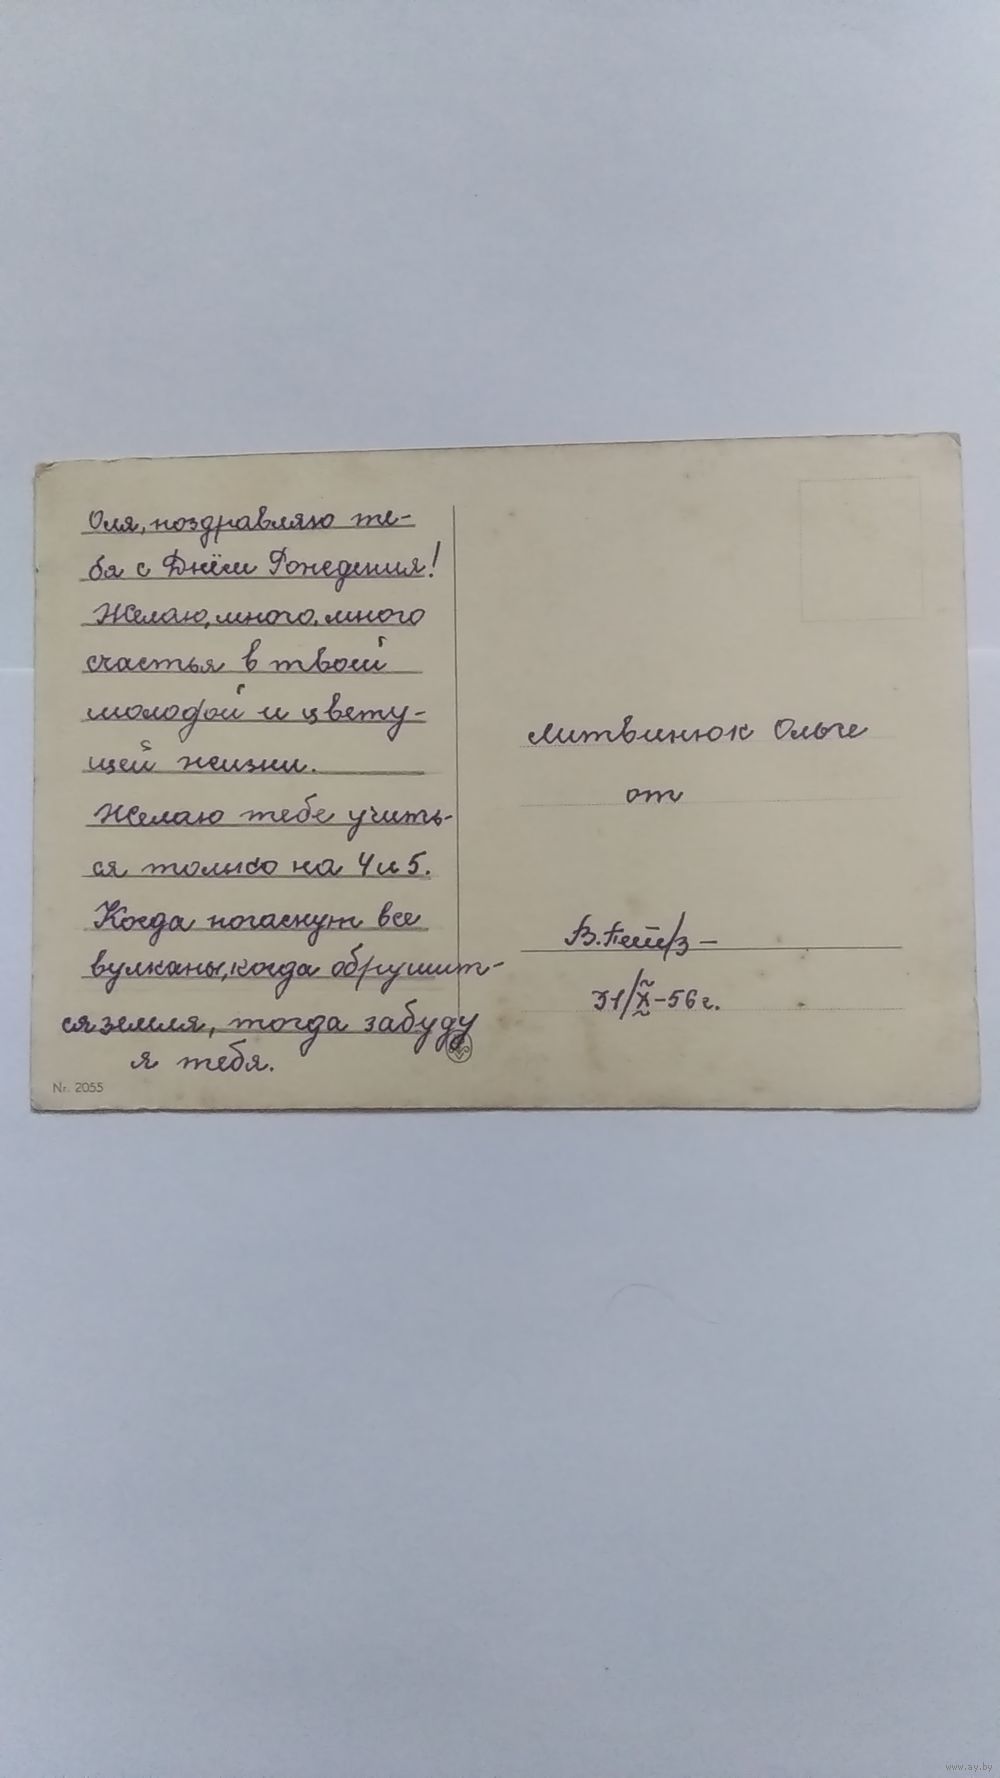 Оля, поздравляю те-
бя с Днём Рождения!
Желаю, много, много
счастья в твоей
молодой и цвету-
щей жизни.
Желаю тебе учить-
ся только на 4 и 5.
Когда погаснут все
вулканы, когда обрушит-
ся земля, тогда забуду
я тебя.
Nr. 2055
Литвинюк Ольге
от
31/X-56 г.
www.ay.by